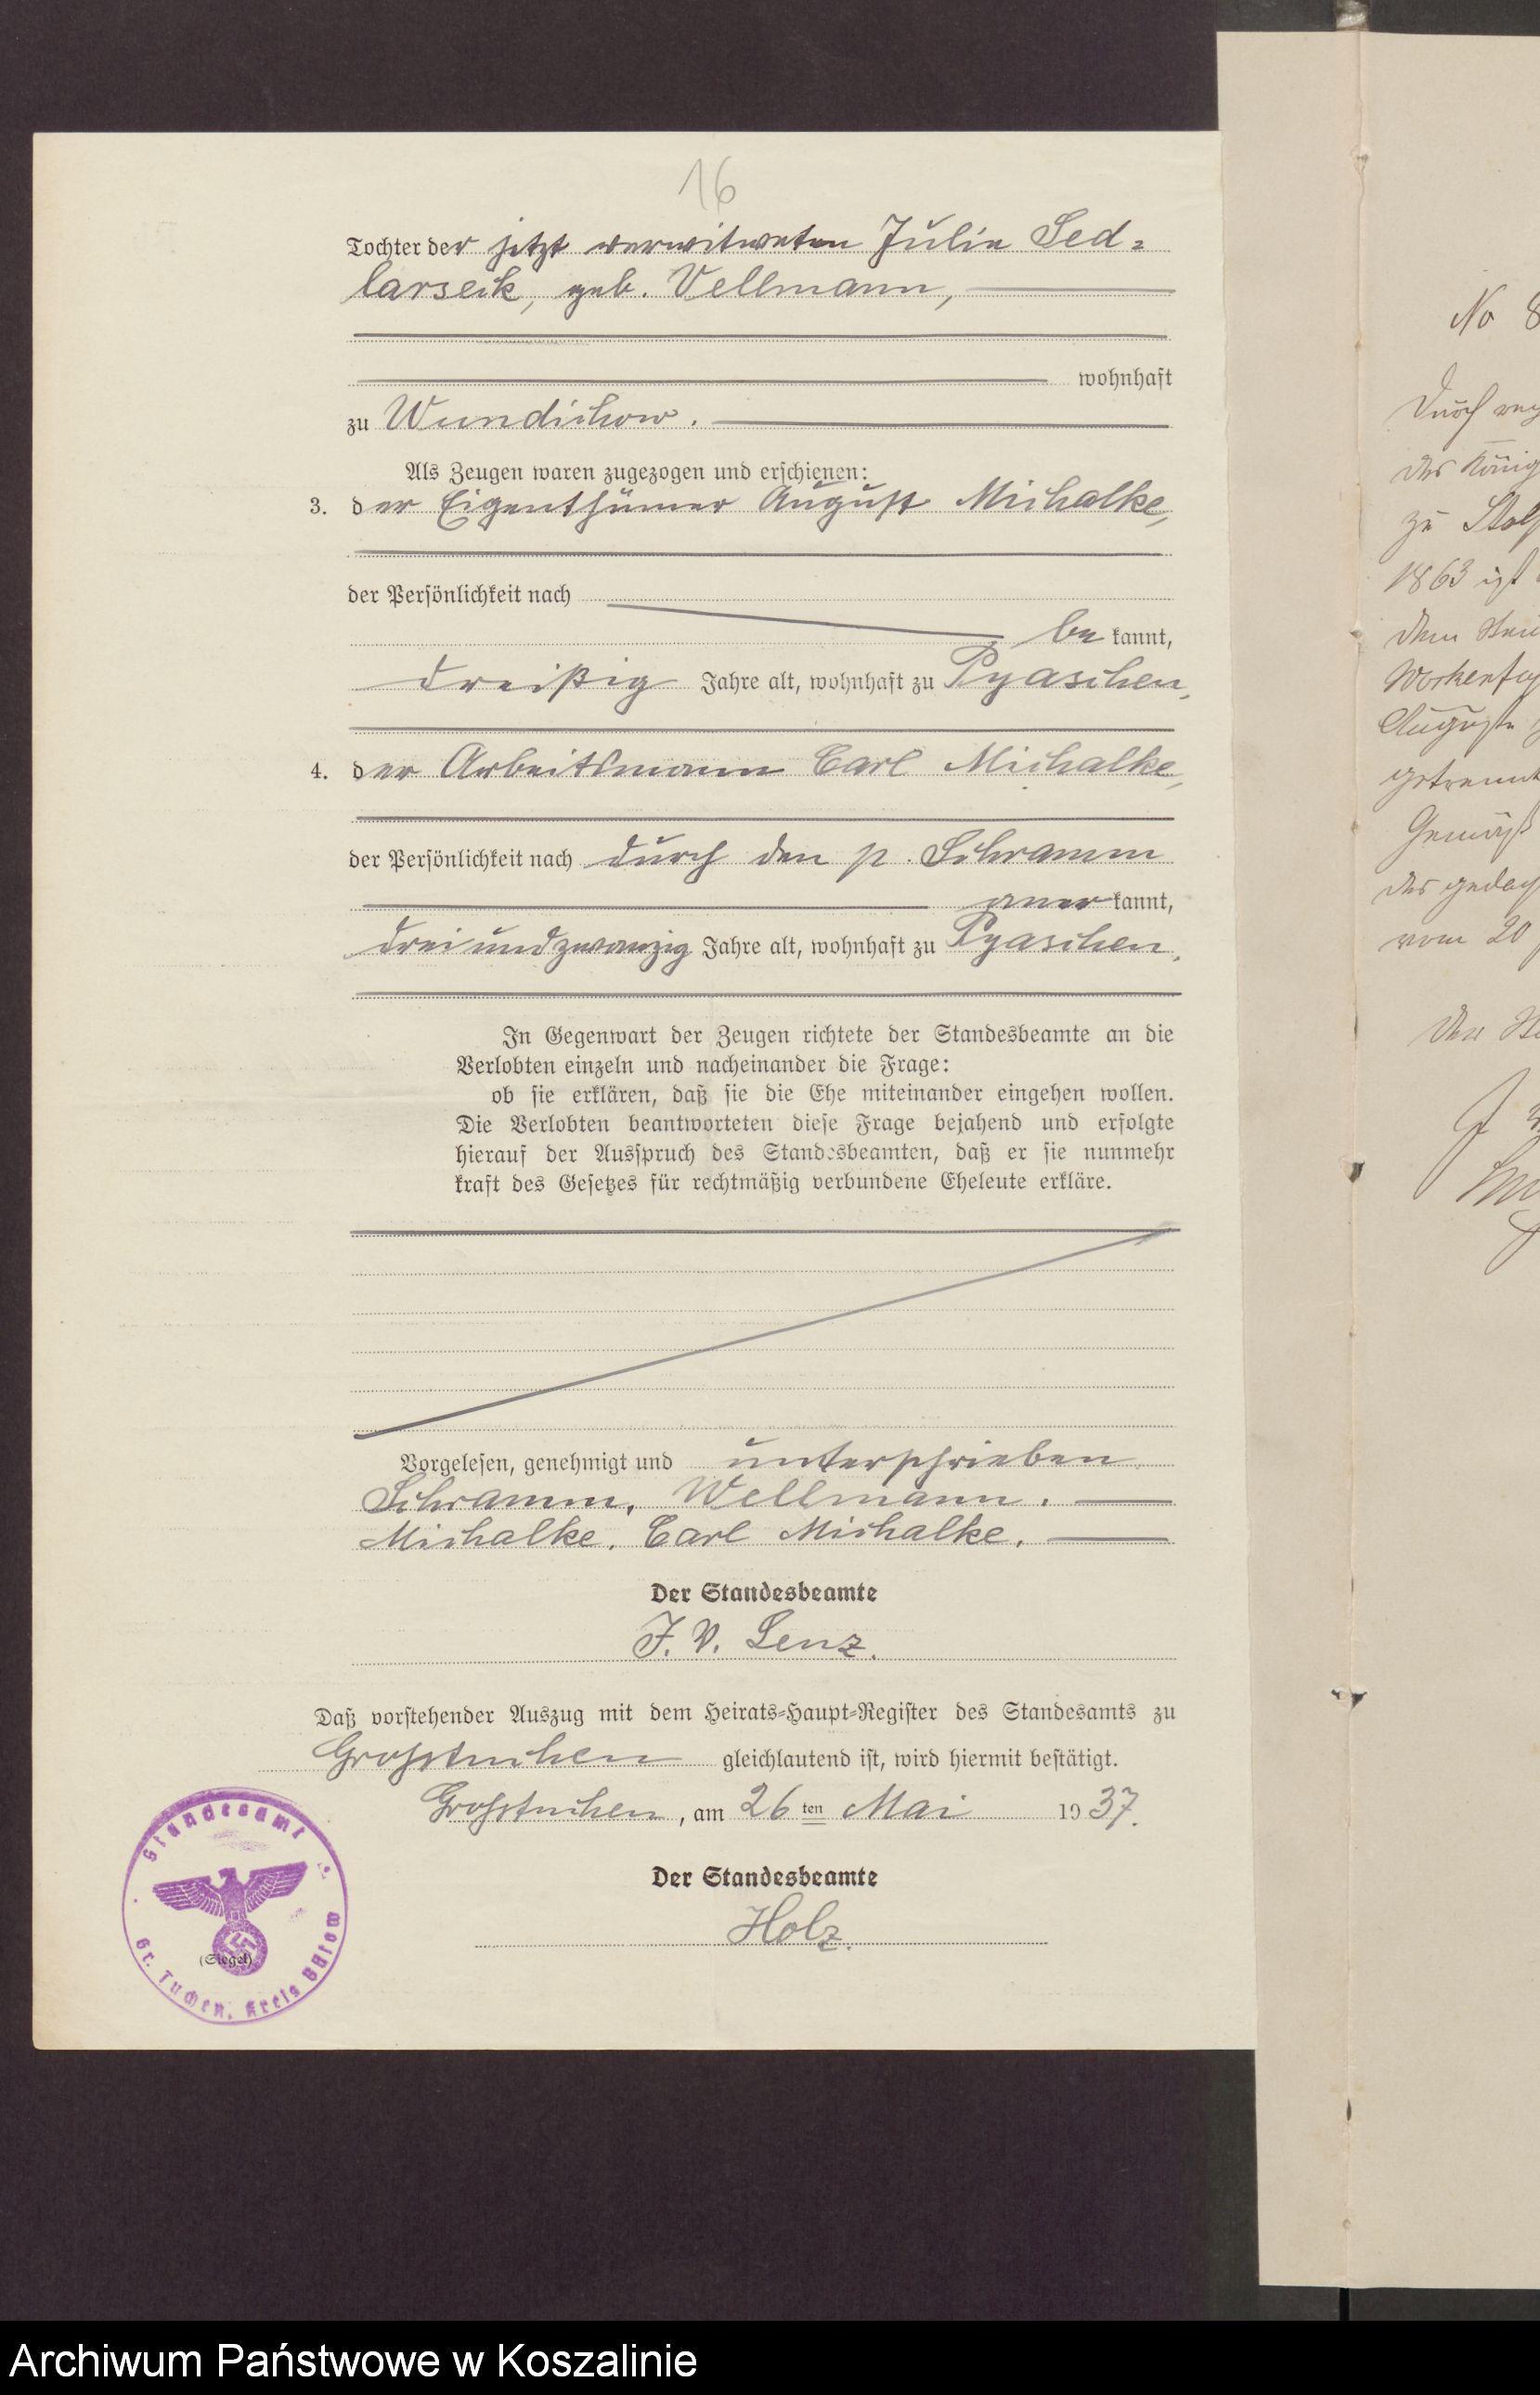 16
Tochter der jetzt verwitweten Julie Sed-
larseck, geb. Vellmann,
wohnhaft
zu Wundichow.
Als Zeugen waren zugezogen und erschienen:
3. der Eigenthümer August Michalke,
der Persönlichkeit nach
be kannt,
dreißig Jahre alt, wohnhaft zu Pyaschen,
4. der Arbeitsmann Carl Michalke,
der Persönlichkeit nach durch den p. Schramm
aner kannt,
dreiundzwanzig Jahre alt, wohnhaft zu Pyaschen.
In Gegenwart der Zeugen richtete der Standesbeamte an die
Verlobten einzeln und nacheinander die Frage:
ob sie erklären, daß sie die Ehe miteinander eingehen wollen.
Die Verlobten beantworteten diese Frage bejahend und erfolgte
hierauf der Ausspruch des Standesbeamten, daß er sie nunmehr
kraft des Gesetzes für rechtmäßig verbundene Eheleute erkläre.
Vorgelesen, genehmigt und unterschrieben
Schramm. Wellmann.
Michalke. Carl Michalke.
Der Standesbeamte
J. V. Lenz.
Daß vorstehender Auszug mit dem Heirats-Haupt-Register des Standesamts zu
Großtuchen gleichlautend ist, wird hiermit bestätigt.
Großtuchen, am 26 ten Mai 1937.
Der Standesbeamte
Holz.
(Siegel)
Standesamt
Gr. Tuchen, Kreis Bütow
No 8
Durch
des König
zu Stolp
1863 ist
dem
August
getrennt
Gemäß
des
vom 20
Archiwum Państwowe w Koszalinie